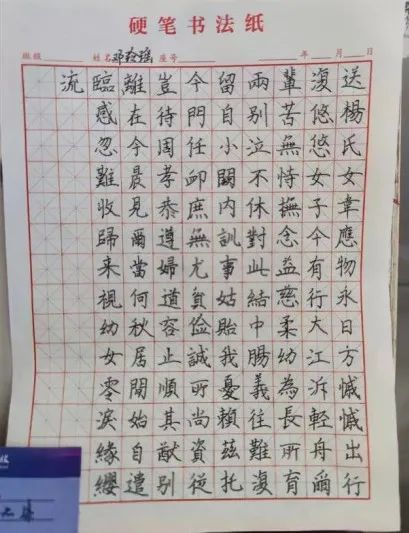 硬笔书法纸
班级 姓名 邓 瑶 座号 年 月 日
送楊氏女韋應物永日方慽慽出行
復悠悠女子今有行大江泝輕舟爾
輩苦無恃撫念益慈柔幼為長所育
兩别泣不休對此結中腸義往難復
留自小闕内訓事姑貽我憂賴兹托
今門任卹庶無尤貧儉誠所尚資從
豈待周孝恭遵婦道容止順其猷别
離在今晨見爾當何秋居閑始自遣
臨感忽難收歸来視幼女零淚緣纓
流